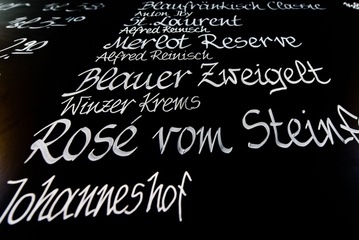 Blaufränkisch Classic
Anton Iby
St. Laurent
Alfred Reinisch
Merlot Reserve
Alfred Reinisch
Blauer Zweigelt
Winzer Krems
Rosé vom Steinf
Johanneshof